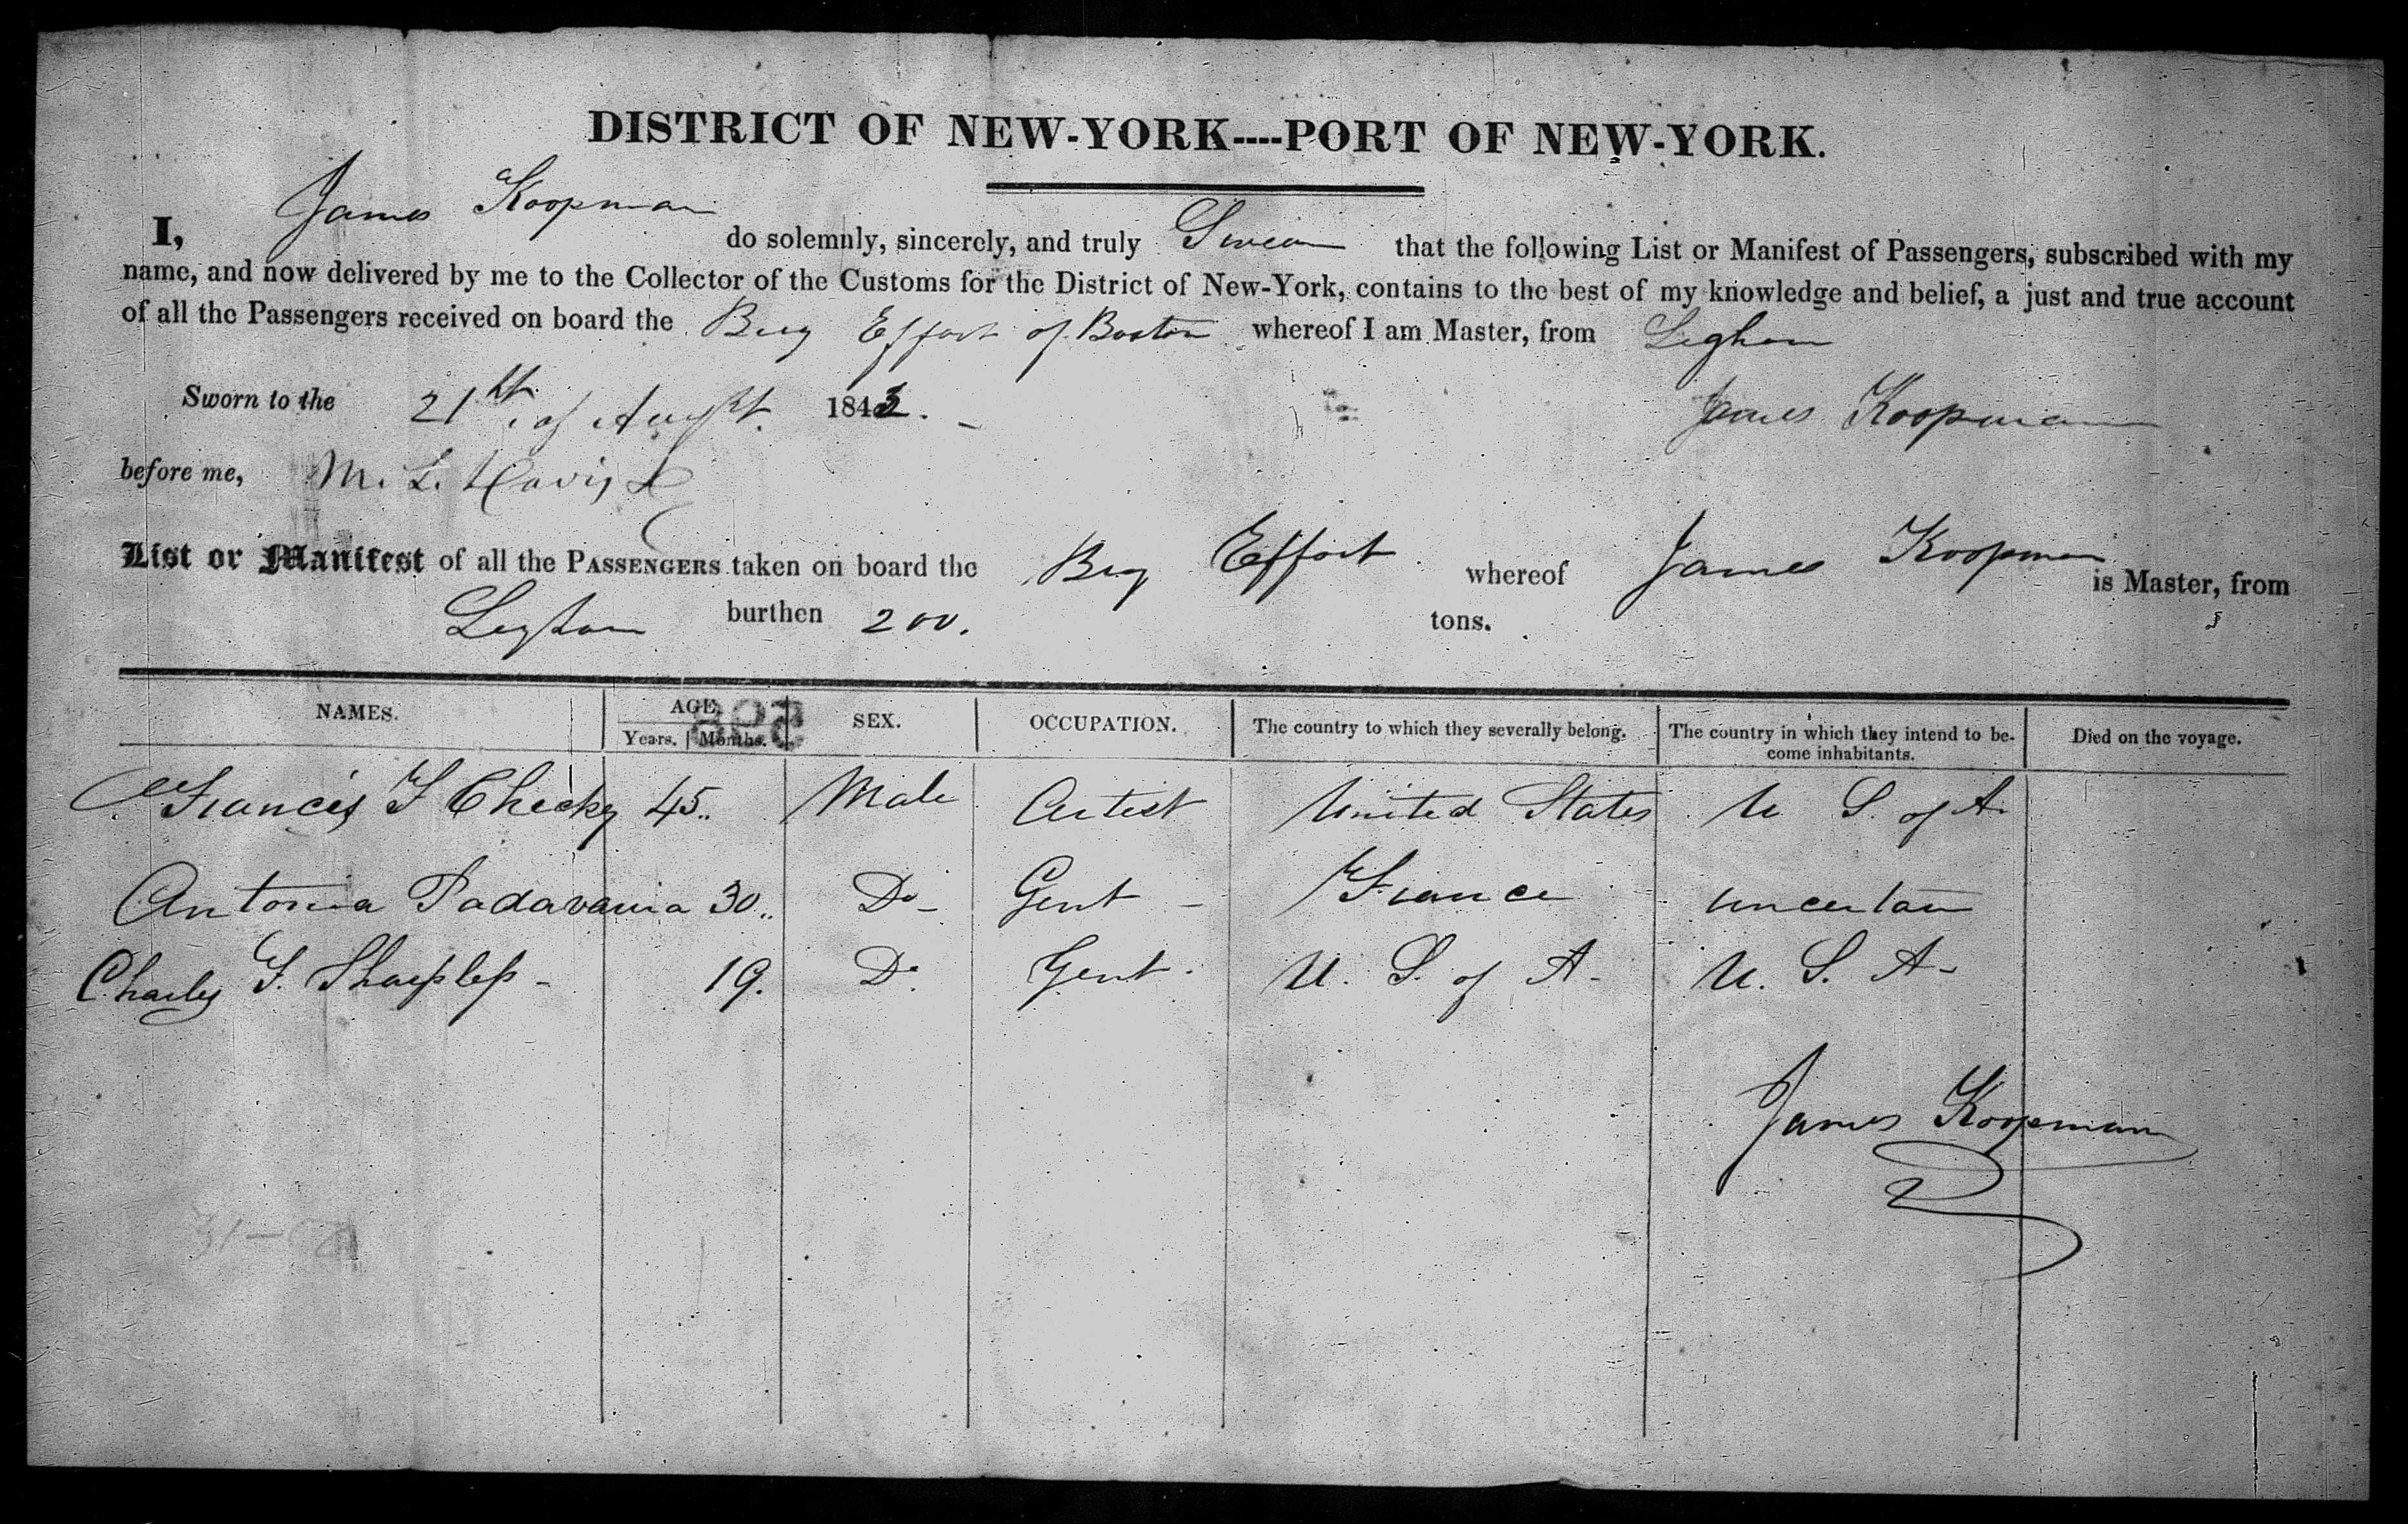 DISTRICT OF NEW-YORK----PORT OF NEW-YORK.
I, James Koopman do solemnly, sincerely, and truly Swear that the following List or Manifest of Passengers, subscribed with my
name, and now delivered by me to the Collector of the Customs for the District of New-York, contains to the best of my knowledge and belief, a just and true account
of all the Passengers received on board the Brig Effort of Boston whereof I am Master, from Leghorn
Sworn to the 21st of Augst. 1843. James Koopman
before me, M. L. Davis
List or Manifest of all the PASSENGERS taken on board the Brig Effort whereof James Koopman is Master, from
Leghorn burthen 200. tons.
NAMES. AGE. SEX. OCCUPATION. The country to which they severally belong. The country in which they intend to be- Died on the voyage.
Years. Months. come inhabitants.
Francis 45 Male Artist United States U S. of A.
Antonia Padavania 30 Do Gent France uncertain
Charles F. Sharpless 19. Do Gent. U. S. of A U. S. A
James Koopman